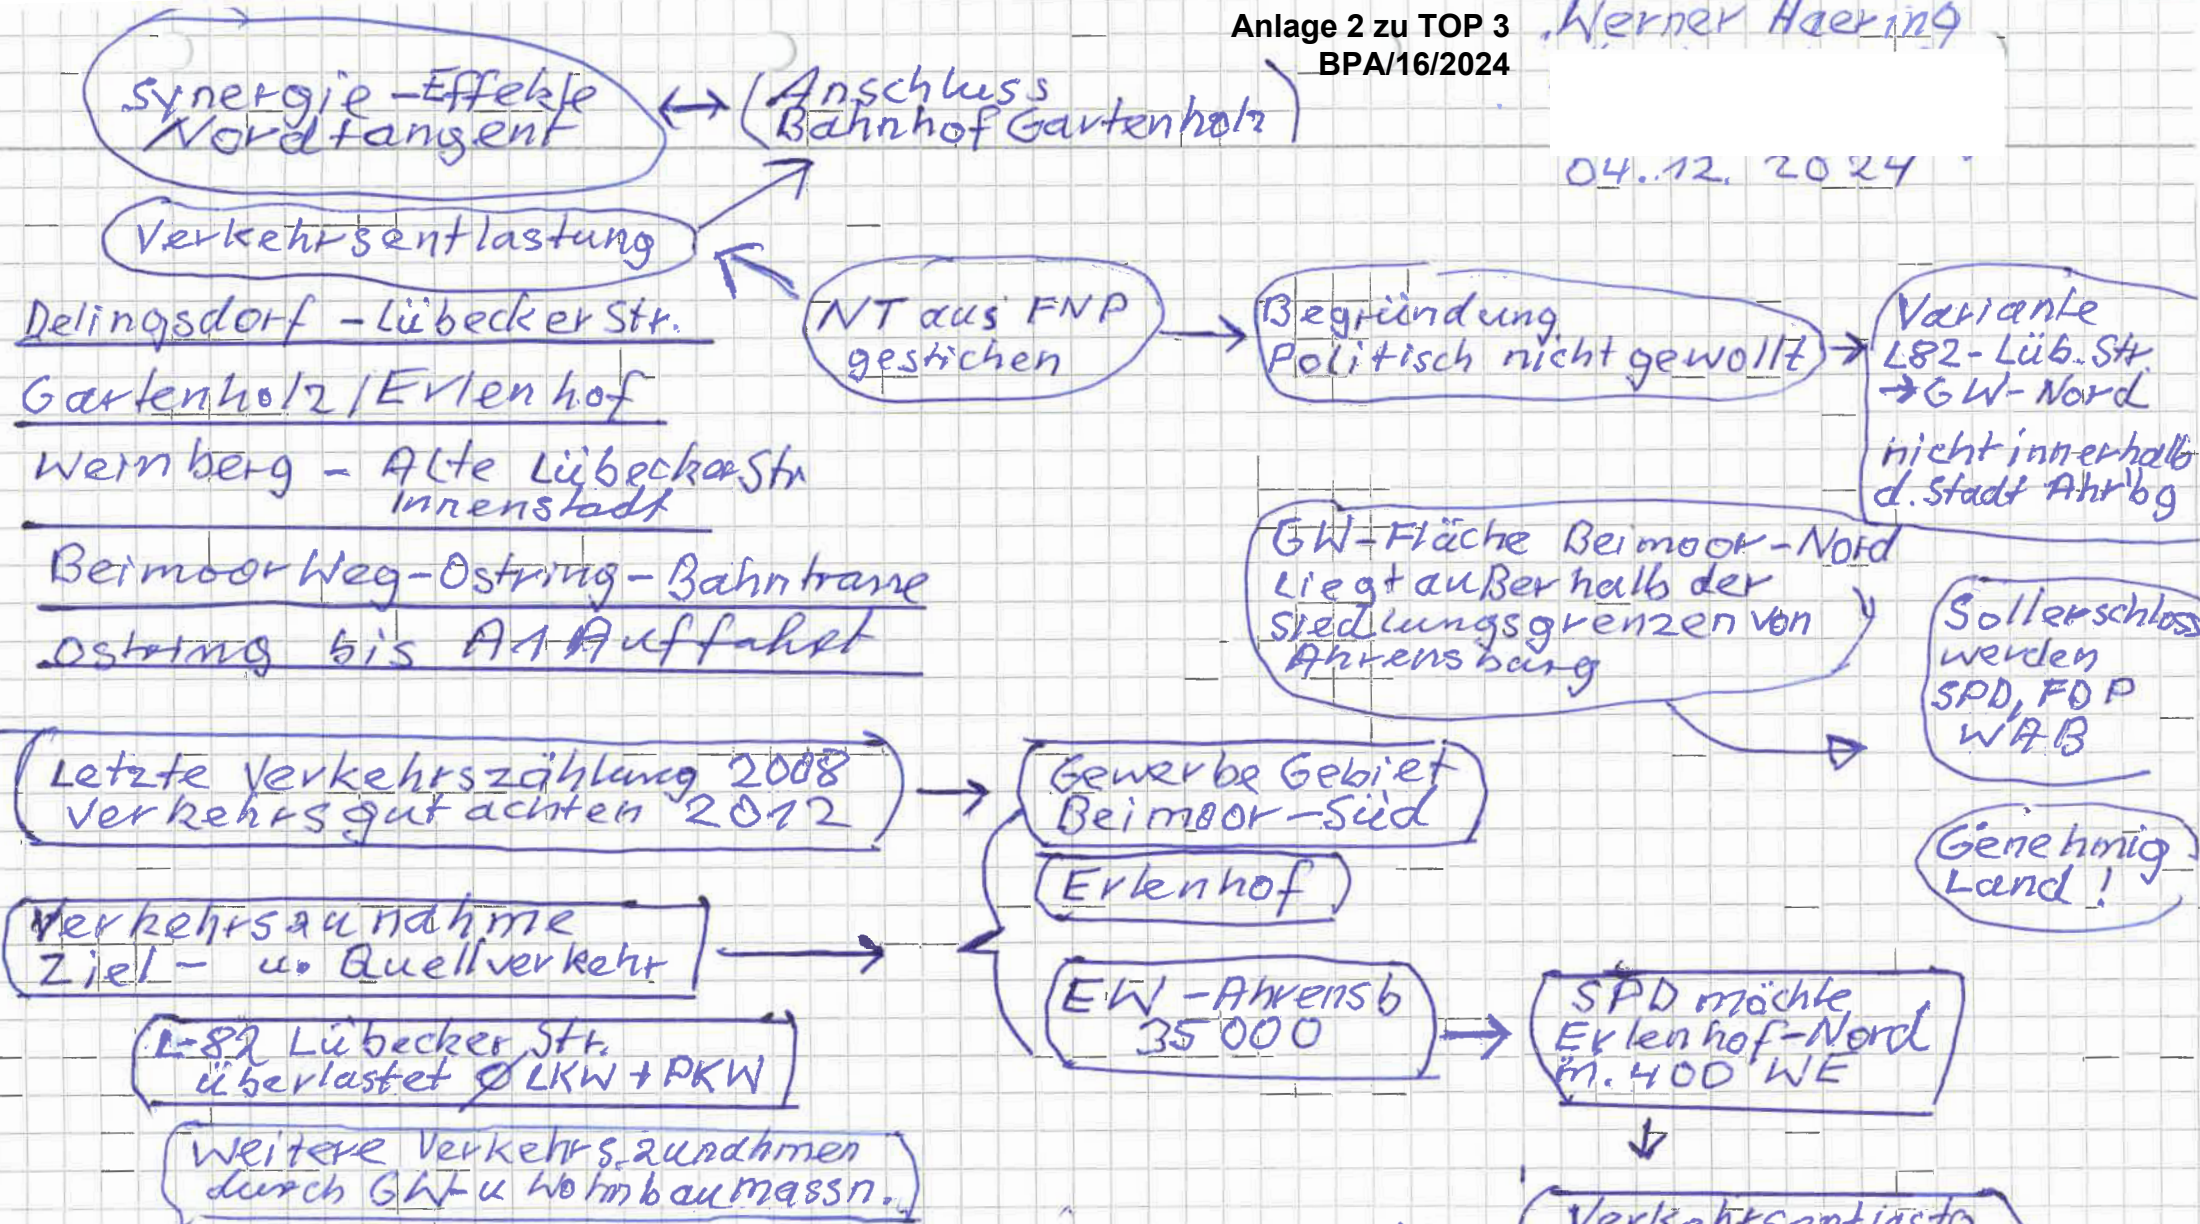 Anlage 2 zu TOP 3
BPA/16/2024
Werner Haering
04.12.2024
Synergie-Effekte
Nordtangent
Anschluss
Bahnhof Gartenholz
Verkehrsentlastung
Delingsdorf - Lübecker Str.
Gartenholz/Erlenhof
Weinberg - Alte Lübecker Str
Innenstadt
Beimoor Weg-Ostring-Bahntrasse
Ostring bis A1 Auffahrt
NT aus FNP
gestichen
Begründung
Politisch nicht gewollt
Variante
L82-Lüb.Str.
→GW-Nord
nicht innerhalb
d. Stadt Ahr'bg
GW-Fläche Beimoor-Nord
Liegt außerhalb der
Siedlungsgrenzen von
Ahrensburg
Soll erschloss
werden
SPD, FDP
WAB
Genehmig
Land!
Letzte Verkehrszählung 2008
Verkehrsgutachten 2012
Gewerbe Gebiet
Beimoor-Süd
Erlenhof
EW-Ahrensb
35000
Verkehrszunahme
Ziel- u. Quellverkehr
L-82 Lübecker Str.
überlastet Ø LKW + PKW
Weitere Verkehrszunahmen
durch GW-u Wohnbaumassn.
SPD möchte
Erlenhof-Nord
m. 400 WE